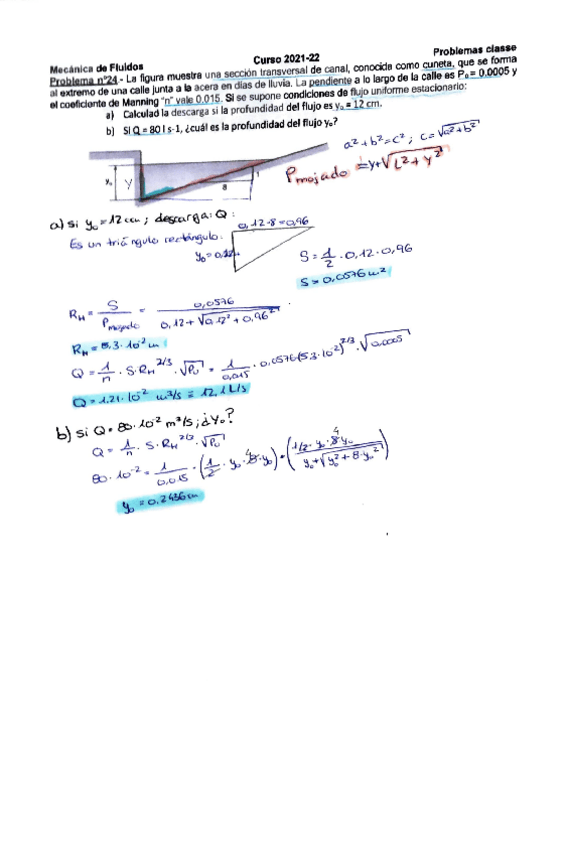 Mecánica de Fluidos Curso 2021-22 Problemas classe
Problema nº24.- La figura muestra una sección transversal de canal, conocida como cuneta, que se forma
al extremo de una calle junta a la acera en días de lluvia. La pendiente a lo largo de la calle es P₀= 0.0005 y
el coeficiente de Manning "n" vale 0.015. Si se supone condiciones de flujo uniforme estacionario:
a) Calculad la descarga si la profundidad del flujo es y₀ = 12 cm.
b) Si Q = 80 l s-1, ¿cuál es la profundidad del flujo y₀?
a²+b²=c² ; c=√a²+b²
Pmojado = y+√L²+y²
y₀ y 8 1
a) si y₀=12cm ; descarga: Q :
Es un triángulo rectángulo.
0,12·8=0,96
S= 1/2 · 0,12 · 0,96
S= 0,0576 m²
R_H = S/Pmojado = 0,0576 / 0,12+√0,12²+0,96²
R_H = 5,3·10⁻² m
Q = 1/n · S·R_H^2/3 · √P₀ = 1/0,015 · 0,0576(5,3·10⁻²)^2/3 · √0,0005
Q = 1.21·10⁻² m³/s = 12.1 L/s
b) si Q= 80·10⁻² m³/s ; ¿Y₀?
Q = 1/n · S·R_H^2/3 · √P₀
80·10⁻² = 1/0,015 · (1/2 · y₀ · 8·y₀) · (1/2 · y₀ · 8 y₀ / y₀+√y₀²+8·y₀²)
y₀ = 0,2436 cm